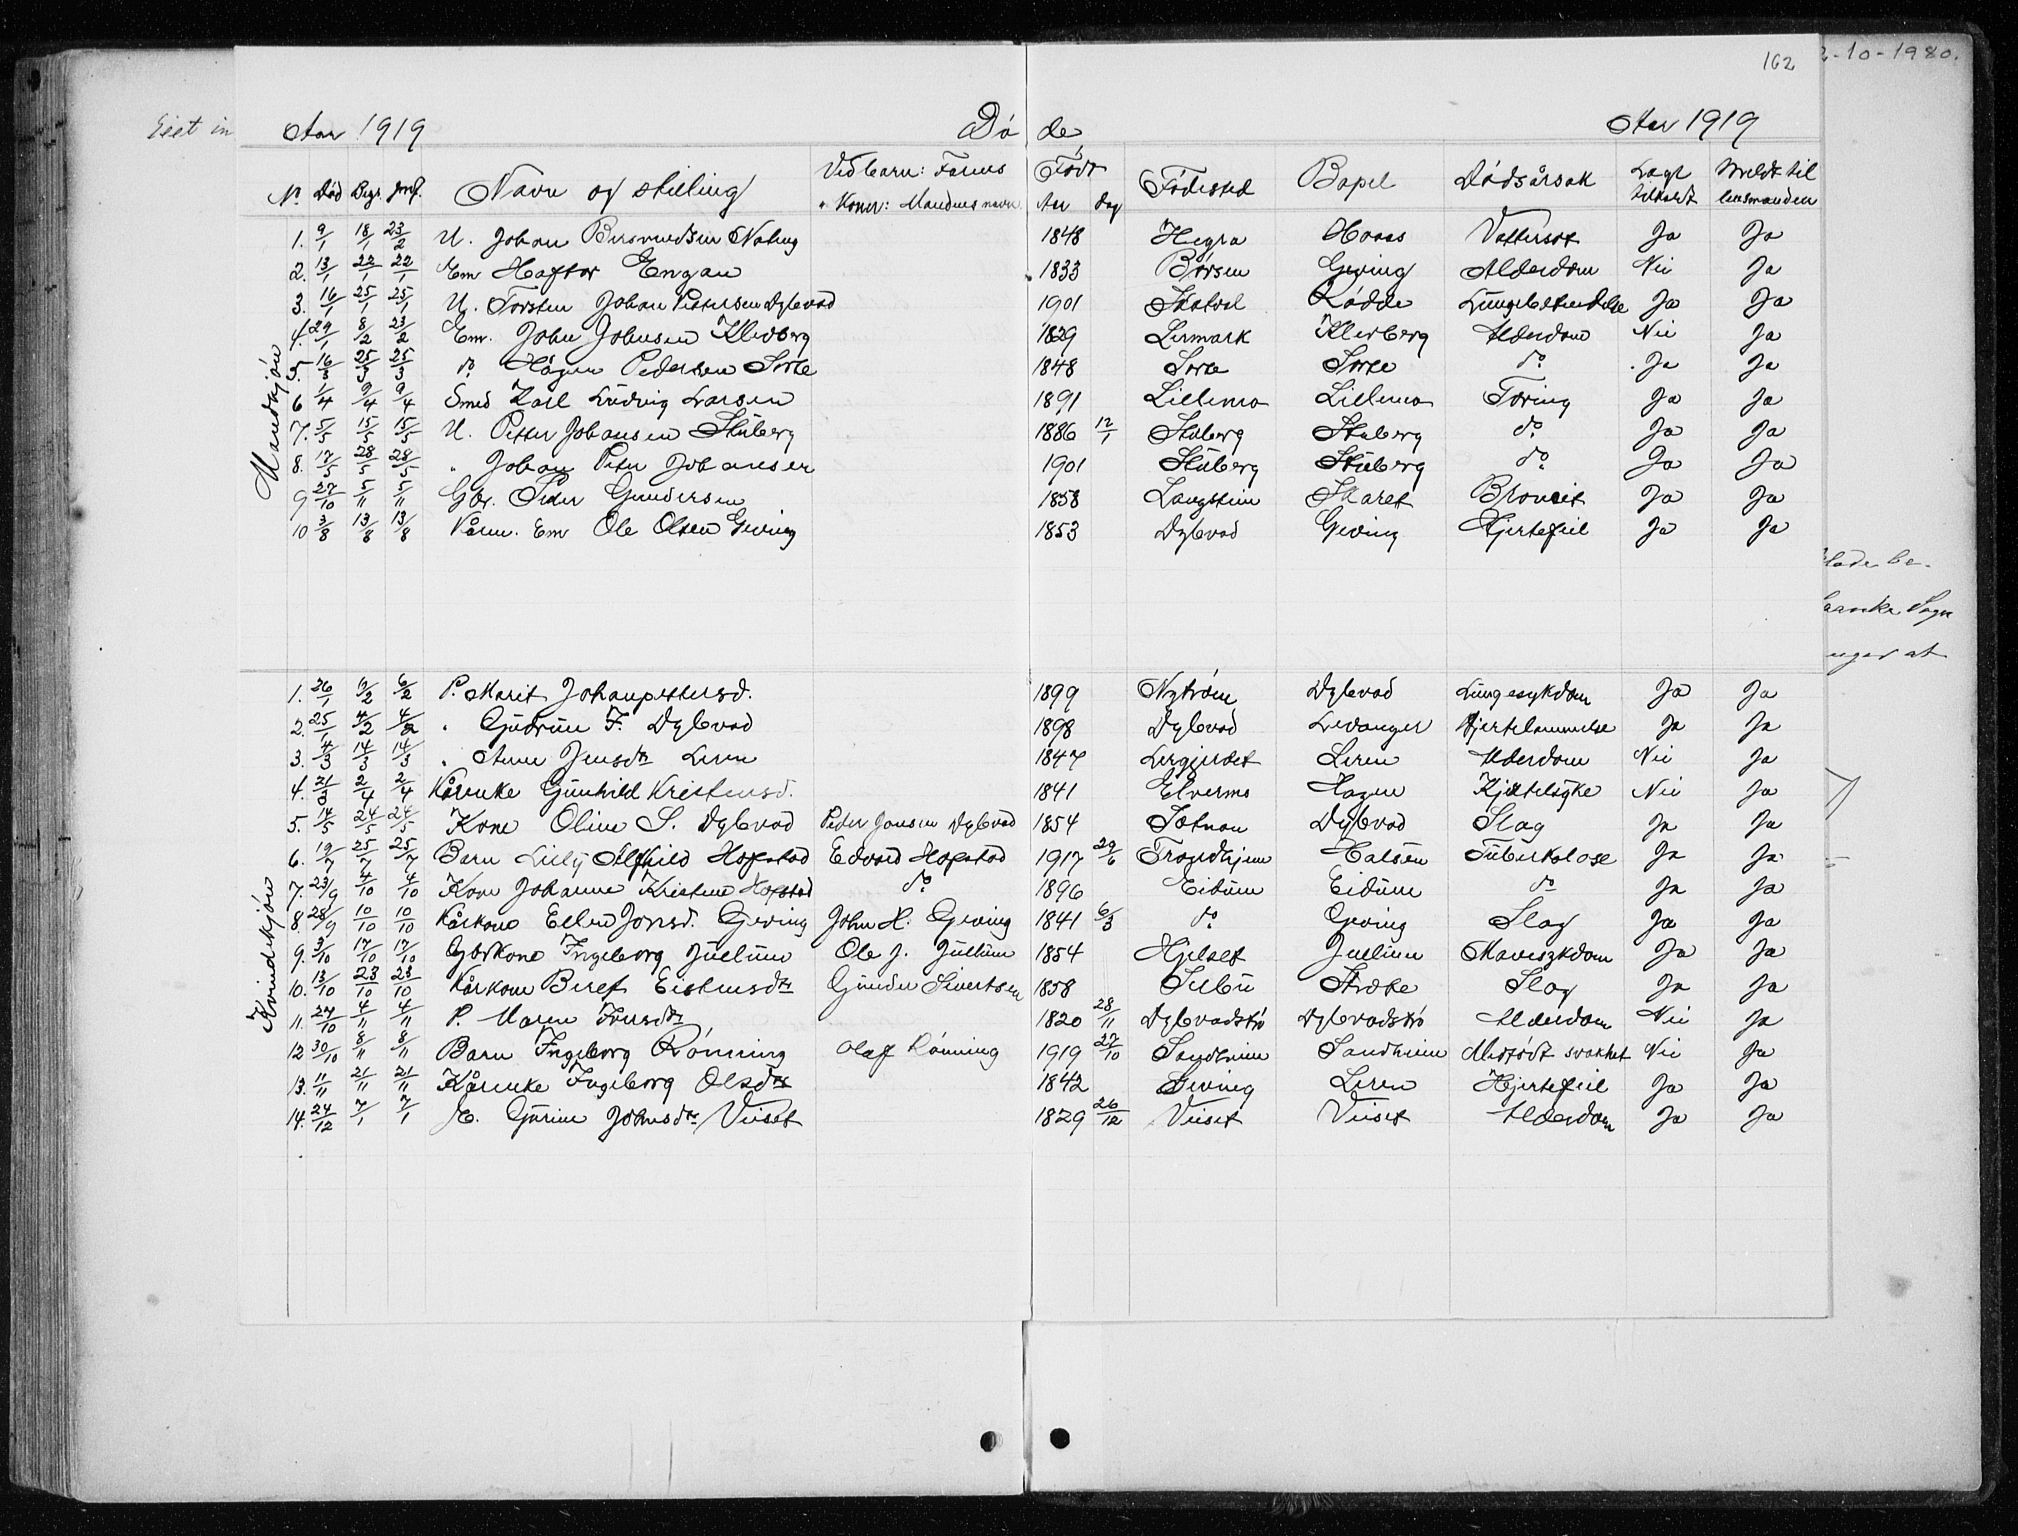 162
2-10-1980.
Aar 1919 Dø de Aar 1919
No Død Begr. Jordf. Navn og stilling Ved barn: Farens Født Fødested Bopel Dødsårsak Læge Meldt til
" Koner: Mandens navn. Aar Dag tilkaldt lensmanden
Mandkjøn
1. 9/1 18/1 23/2 U. Johan 1848 Hegra Vattersot Ja Ja
2. 13/1 22/1 22/1 Em Haftor Engan 1833 Børsen Geving Alderdom Nei Ja
3. 16/1 25/1 25/1 U. Torsten Johan Pettersen Dybvad 1901 Skatval Rødde Lungebetendelse Ja Ja
4. 29/1 8/2 23/2 Em. John Johnsen Kleberg 1829 Lermark Kleberg Alderdom Nei Ja
5. 16/3 25/3 25/3 do Hågen Pedersen Sorte 1848 Sorte Sorte do Ja Ja
6 1/4 9/4 9/4 Smed Karl Ludvig Larsen 1891 Lillemo Lillemo Tæring Ja Ja
7. 5/5 15/5 15/5 U. Petter Johansen Stuberg 1886 12/1 Stuberg Stuberg do Ja Ja
8. 17/5 28/5 28/5 " Johan Peter Johansen 1901 Stuberg Stuberg do Ja Ja
9 27/10 5/11 5/11 Gbr. Peder Gundersen 1858 Langstein Skaret Bronkit Ja Ja
10 3/8 13/8 13/8 Kårm. Em Ole Olsen Geving 1853 Dybvad Geving Hjertefeil Ja Ja
Kvindekjøn
1. 26/1 6/2 6/2 P. Marit Johanpettersd. 1899 Nytrøen Dybvad Lungesykdom Ja Ja
2. 25/1 4/2 4/2 " Gudrun F. Dybvad 1898 Dybvad Levanger Hjertelammelse Ja Ja
3. 4/3 14/3 14/3 " Anne Jensdtr Leren 1847 Lergjerdet Leren Alderdom Nei Ja
4. 21/3 2/4 2/4 Kårenke Gunhild Kristensd. 1841 Elvermo Hagen Kjertelsyke Nei Ja
5. 14/5 24/5 24/5 Kone Oline S. Dybvad Peder Jonsen Dybvad 1854 Sotnan Dybvad Slag Ja Ja
6. 19/7 25/7 25/7 Barn Lilly Alfhild Hopstad Edvard Hopstad 1917 29/6 Trondhjem Halsen Tuberkolose Ja Ja
7. 23/9 4/10 4/10 Kone Johanne Kristine Hopstad do 1896 Eidum Eidum do Ja Ja
8. 28/9 10/10 10/10 Kårkone Ellen Jonsd. Geving John H. Geving 1841 6/3 do Geving Slag Ja Ja
9. 3/10 17/10 17/10 Gbrkone Ingeborg Jullum Ole J. Jullum 1854 Hjelset Jullum Mavesykdom Ja Ja
10. 13/10 23/10 23/10 Kårkone Beret Eistensdtr Gunder Sivertsen 1858 Selbu Skobe Slag Ja Ja
11. 27/10 4/11 4/11 P. Maren Iversdtr 1820 28/11 Dybvadstrø Dybvadstrø Alderdom Nei Ja
12 30/10 8/11 8/11 Barn Ingeborg Rønning Olaf Rønning 1919 27/10 Sandheim Sandheim Medfødt svakhet Nei Ja
13. 11/11 21/11 21/11 Kårenke Ingeborg Olsdtr 1842 Geving Leren Hjertefeil Ja Ja
14. 24/12 7/1 7/1 E. Gurine Johnsdtr Viiset 1829 26/12 Viiset Viiset Alderdom Ja Ja